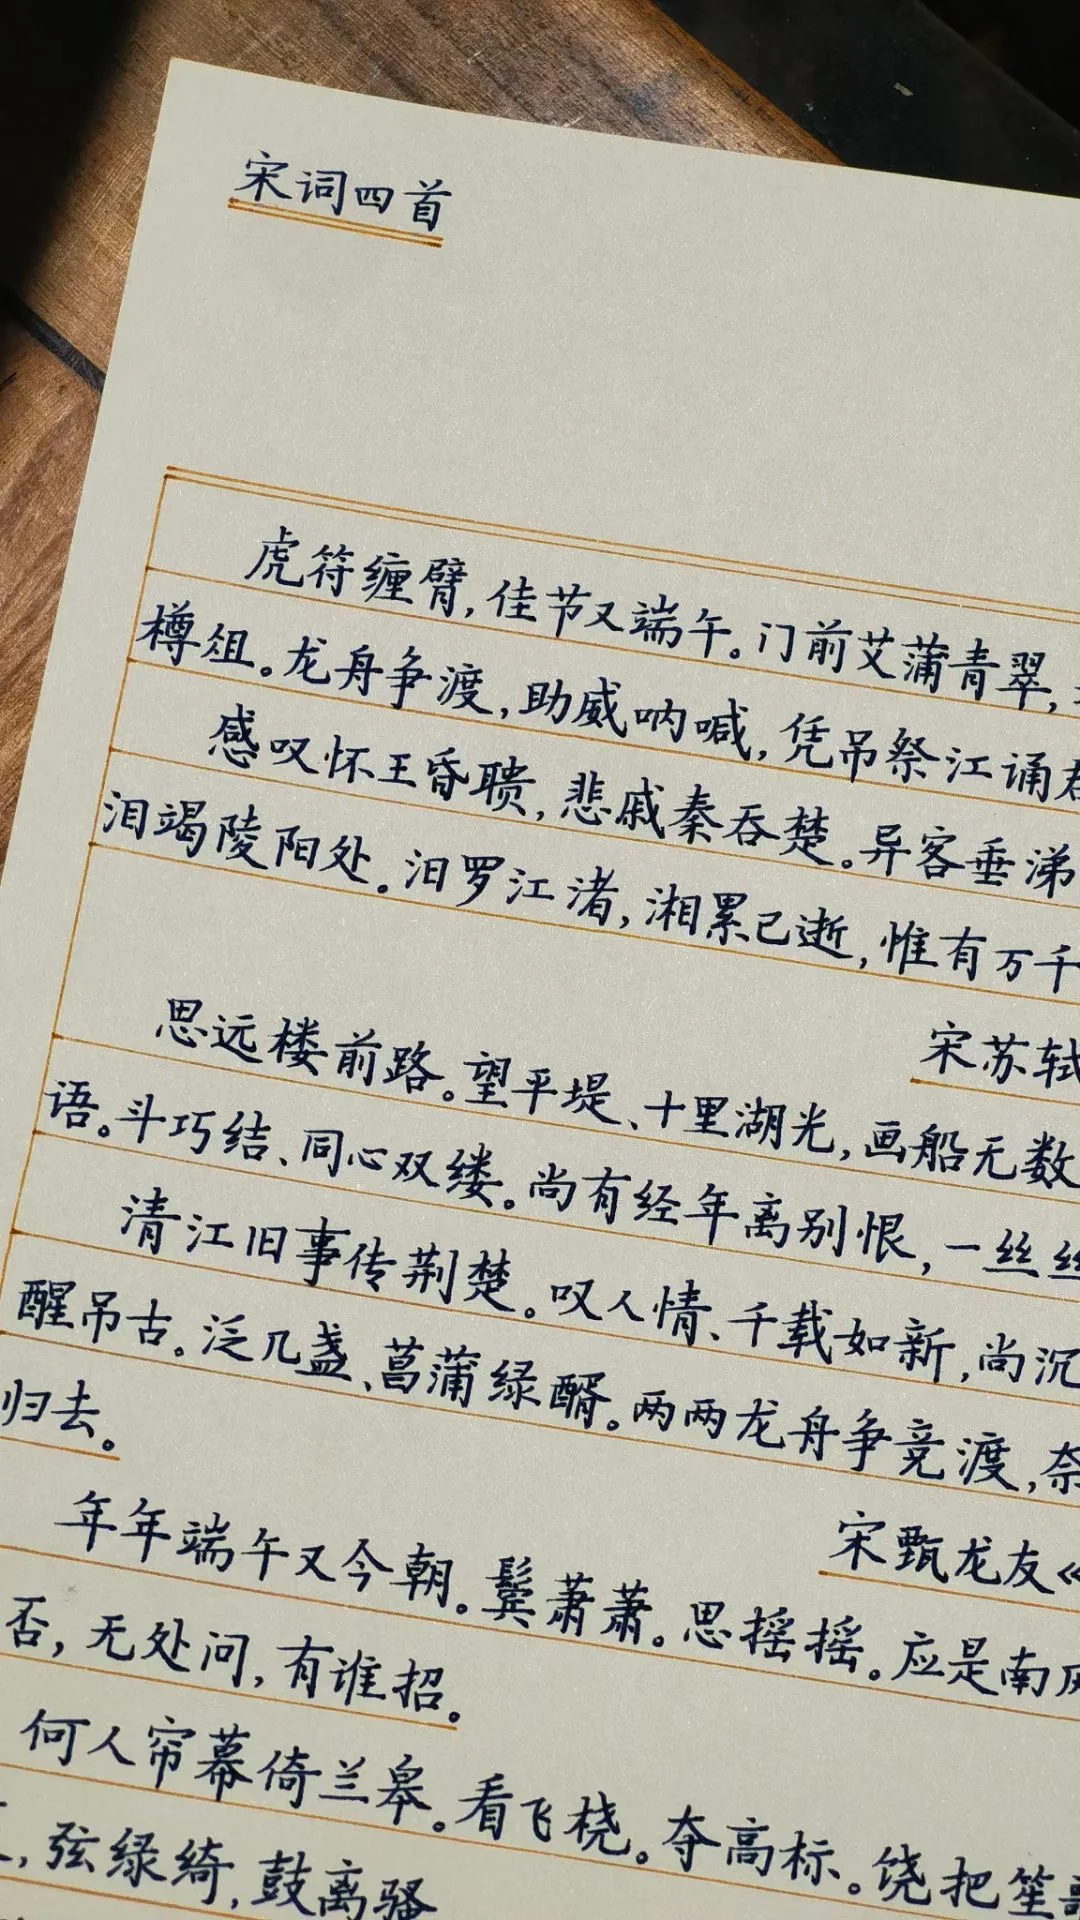 宋词四首
虎符缠臂，佳节又端午。门前艾蒲青翠，
樽俎。龙舟争渡，助威呐喊，凭吊祭江诵
感叹怀王昏聩，悲戚秦吞楚。异客垂涕
泪竭陵阳处。汨罗江渚，湘累已逝，惟有万千
宋苏轼
思远楼前路。望平堤、十里湖光，画船无数
语。斗巧结、同心双缕。尚有经年离别恨，一丝丝
清江旧事传荆楚。叹人情、千载如新，尚沉
醒吊古。泛几盏、菖蒲绿醑。两两龙舟争竞渡，奈
归去。
宋甄龙友《
年年端午又今朝。鬓萧萧。思摇摇。应是南
否，无处问，有谁招。
何人帘幕倚兰皋。看飞桡。夺高标。饶把笙
，弦绿绮，鼓离骚